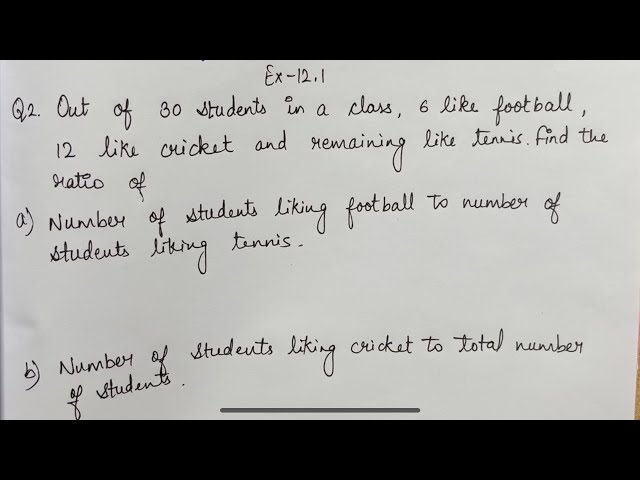 Ex-12.1
Q2. Out of 30 students in a class, 6 like football,
12 like cricket and remaining like tennis. Find the
ratio of
a) Number of students liking football to number of
students liking tennis.
b) Number of students liking cricket to total number
of students.